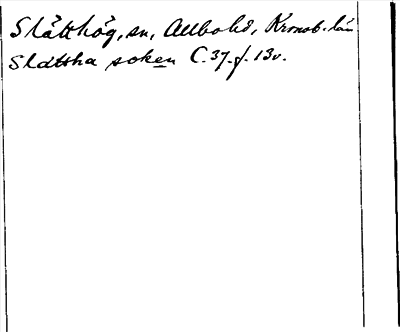 Slätthög, sn, Allbohd, Kronob. län
Slattha soken C. 37. f. 13v.